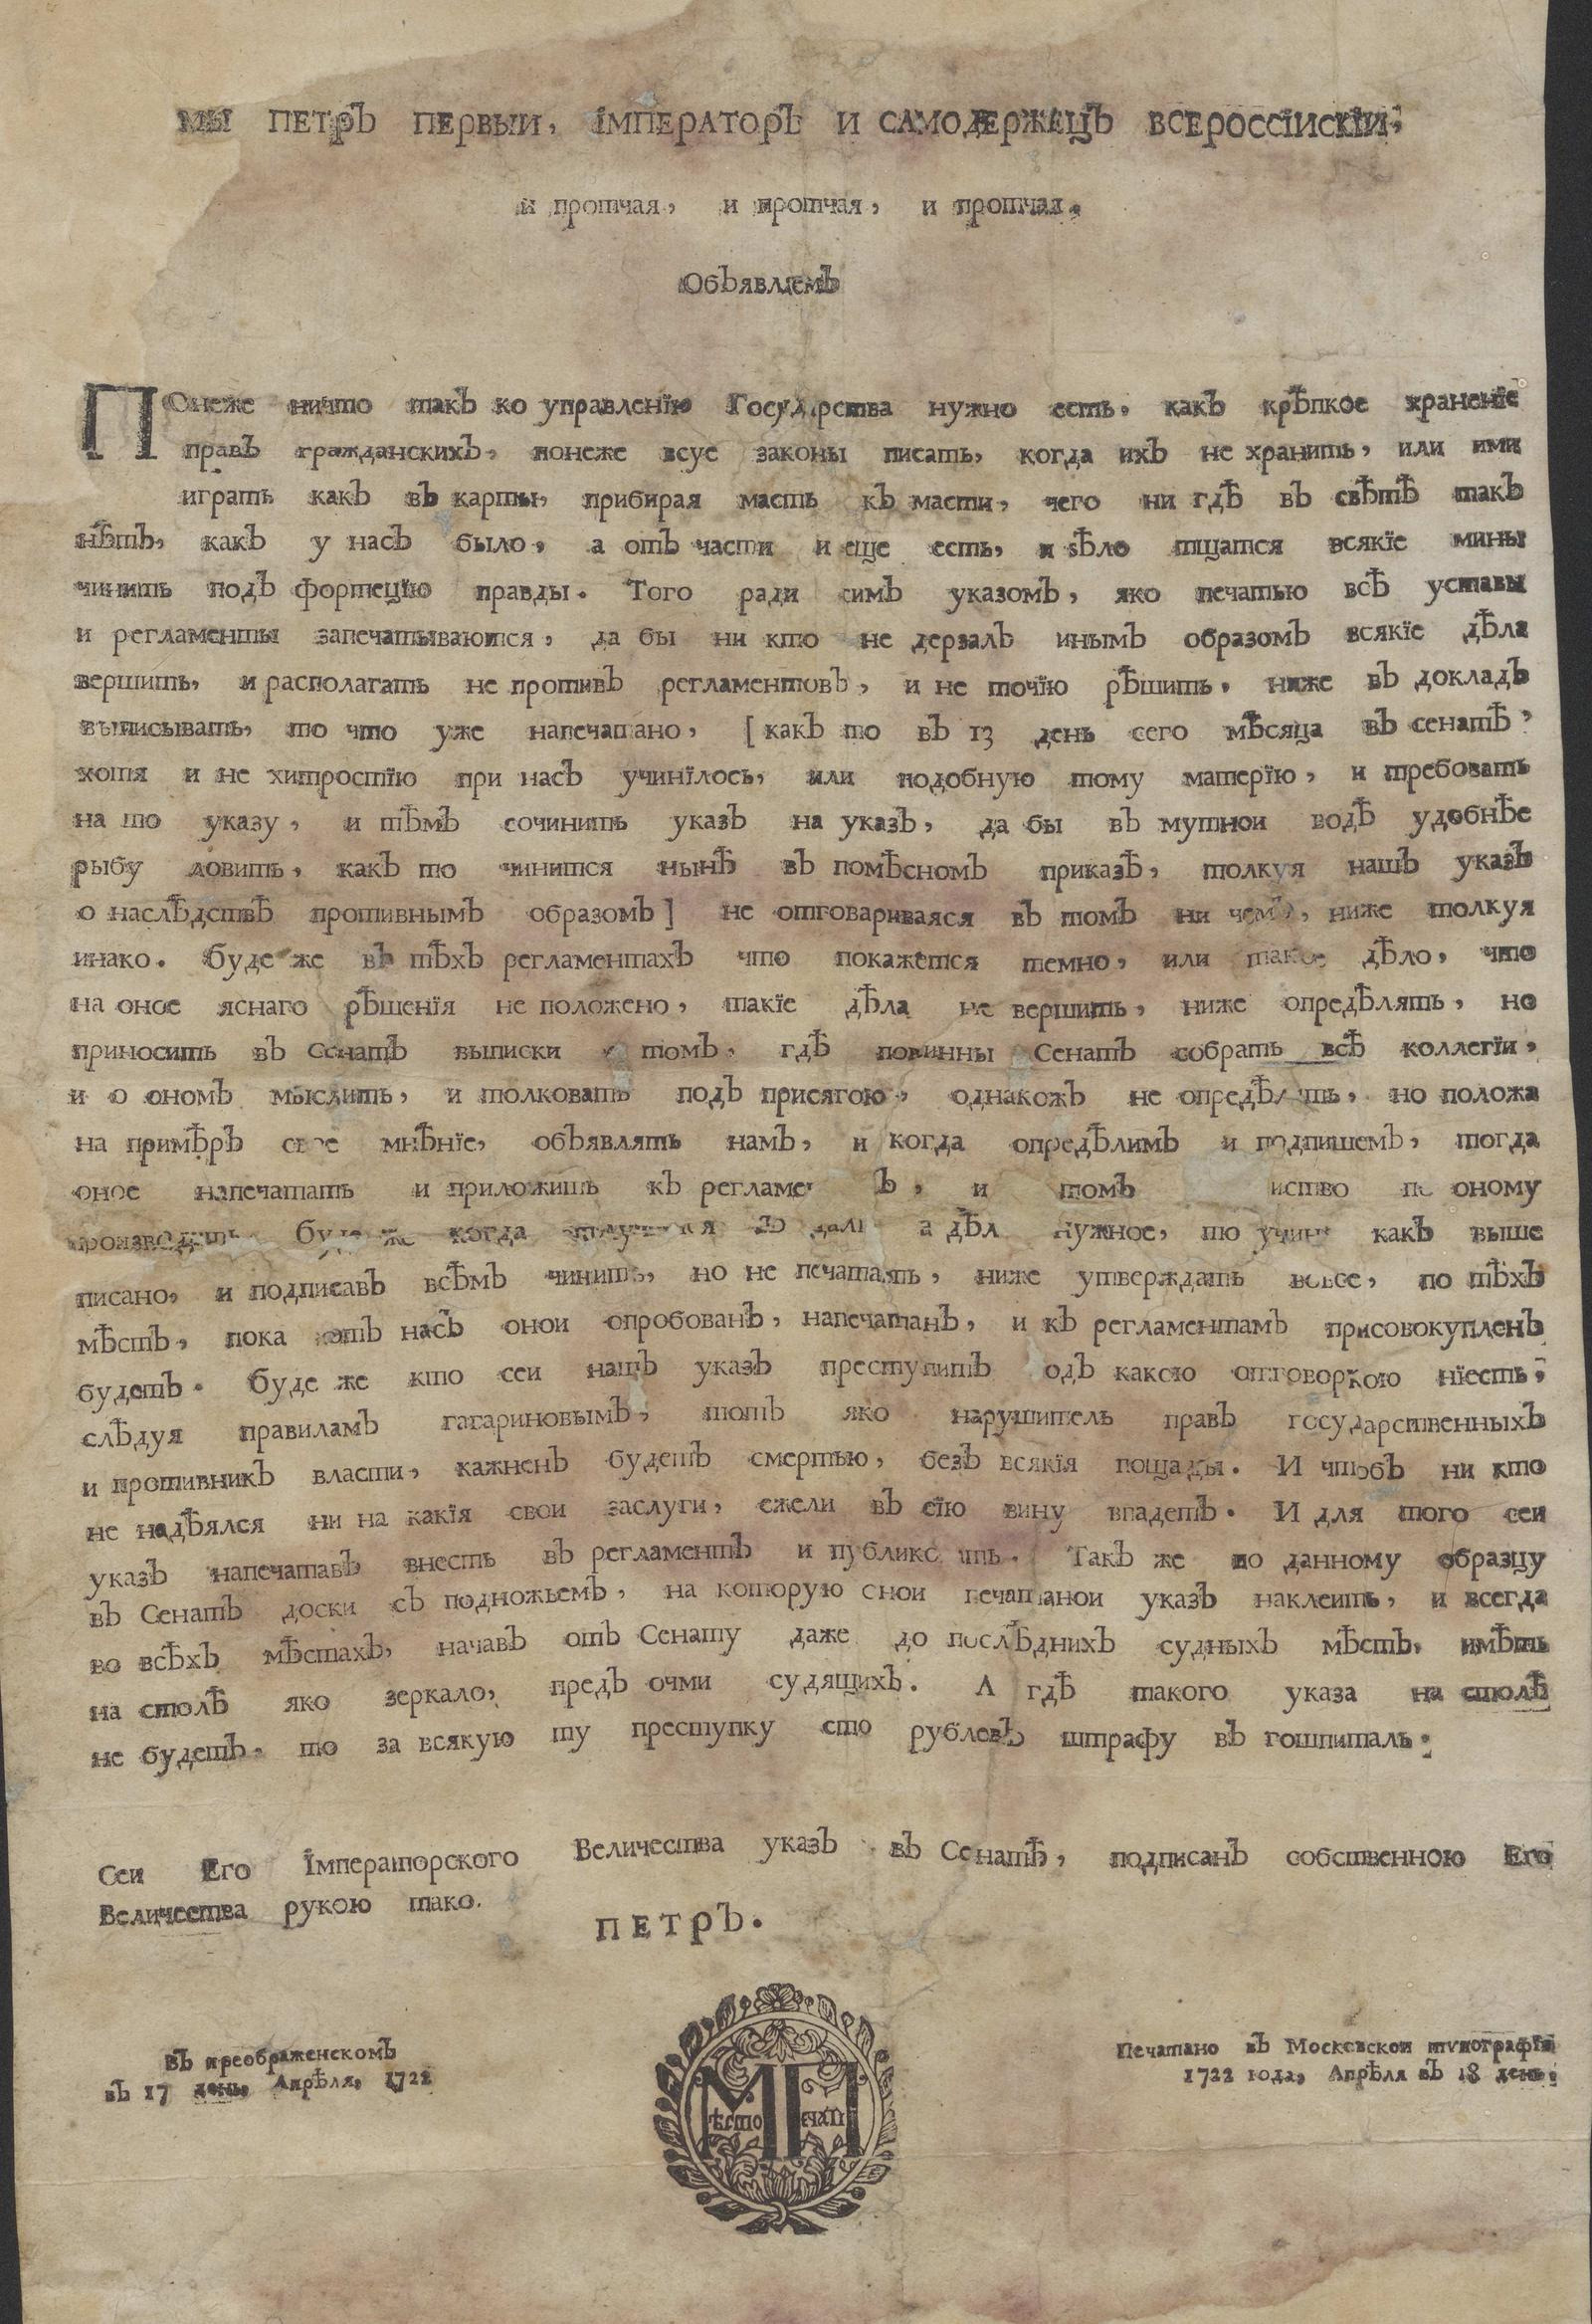 МЫ ПЕТРЪ ПЕРВЫИ, ІМПЕРАТОРЪ И САМОДЕРЖЕЦЪ ВСЕРОССІИСКІИ,
и протчая, и протчая, и протчая.
Объявляемъ
ПОнеже ничто такъ ко управленїю Государства нужно есть, какъ крѣпкое храненїе
правъ гражданскихъ, понеже всуе законы писать, когда ихъ не хранить, или ими
играть какъ въ карты, прибирая масть къ масти, чего ни гдѣ въ свѣтѣ такъ
нѣтъ, какъ у насъ было, а отъ части и еще есть, и ѕѣло тщатся всякїе мины
чинить подъ фортецїю правды. Того ради симъ указомъ, яко печатью всѣ уставы
и регламенты запечатываются, да бы ни кто не дерзалъ инымъ образомъ всякїе дѣла
вершить, и располагать не противъ регламентовъ, и не точїю рѣшить, ниже въ докладъ
выписывать, то что уже напечатано, [ какъ то въ 13 день сего мѣсяца въ сенатѣ,
хотя и не хитростїю при насъ учинїлось, или подобную тому матерїю, и требовать
на то указу, и тѣмъ сочинить указъ на указъ, да бы въ мутнои водѣ удобнѣе
рыбу ловить, какъ то чинится нынѣ въ помѣсномъ приказѣ, толкуя нашъ указъ
о наслѣдствѣ противнымъ образомъ ] не отговариваяся въ томъ ни чемъ, ниже толкуя
инако. буде же въ тѣхъ регламентахъ что покажется темно, или такое дѣло, что
на оное яснаго рѣшенїя не положено, такїе дѣла не вершить, ниже опредѣлять, но
приносить въ Сенатъ выписки о томъ, гдѣ повинны Сенатъ собрать всѣ коллегїи,
и о ономъ мыслить, и толковать подъ присягою, однакожъ не опредѣлять, но положа
на примѣръ свое мнѣнїе, объявлять намъ, и когда опредѣлимъ и подпишемъ, тогда
оное напечатать и приложить къ и томъ по оному
производить. буде же когда дѣл нужное, то учиня какъ выше
писано, и подписавъ всѣмъ чинить, но не печатать, ниже утверждать вовсе, по тѣхъ
мѣстъ, пока отъ насъ онои опробованъ, напечатанъ, и къ регламентамъ присовокупленъ
будетъ. буде же кто сеи нашъ указъ преступитъ подъ какою отговоркою нїесть,
слѣдуя правиламъ гагариновымъ, тотъ яко нарушитель правъ государственныхъ
и противникъ власти, кажненъ будетъ смертью, безъ всякїя пощады. И чтобъ ни кто
не надѣялся ни на какїя свои заслуги, ежели въ сїю вину впадетъ. И для того сеи
указъ напечатавъ внесть въ регламентъ и публиковать. Такъ же по данному образцу
въ Сенатѣ доски съ подножьемъ, на которую онои печатанои указъ наклеить, и всегда
во всѣхъ мѣстахъ, начавъ отъ Сенату даже до послѣднихъ судныхъ мѣстъ, имѣть
на столѣ яко зеркало, предъ очми судящихъ. А гдѣ такого указа на столѣ
не будетъ, то за всякую ту преступку сто рублевъ штрафу въ гошпиталь.
Сеи Его Їмператорского Величества указъ въ Сенатѣ, подписанъ собственною Его
Величества рукою тако.
ПЕТРЪ.
Въ преображенскомъ
въ 17 день, Апрѣля, 1722
Печатано въ Московскои тѵпографїи
1722 года, Апрѣля въ 18 день.
Мѣсто Печати